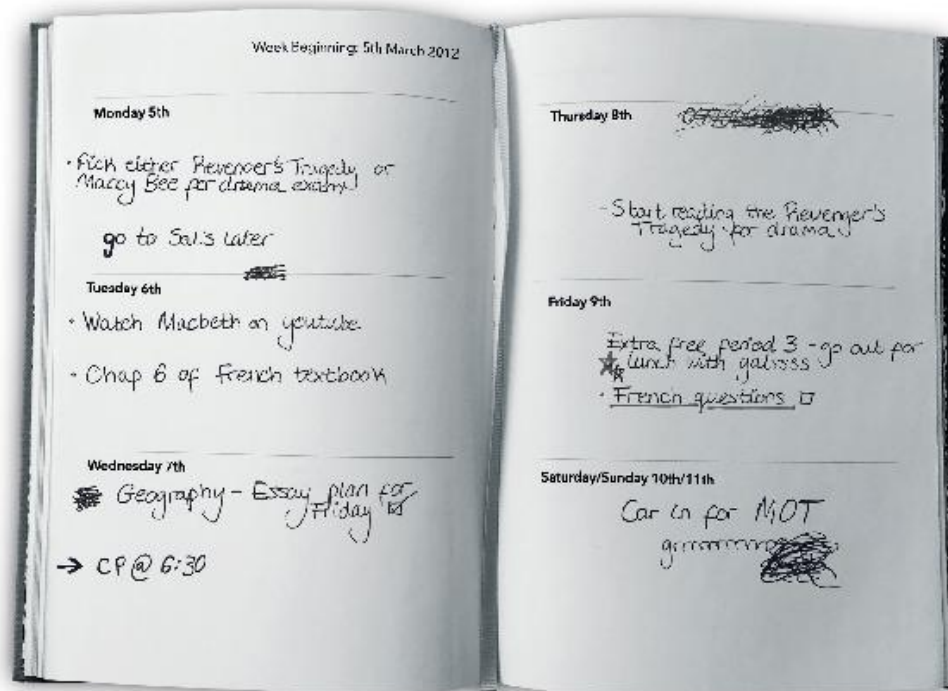 Week Beginning: 5th March 2012
Monday 5th
· Pick either Revenger's Tragedy or
Maccy Bee for drama exam
go to Sal's later
Tuesday 6th
· Watch Macbeth on youtube
· Chap 6 of French textbook
Wednesday 7th
Geography - Essay plan for
Friday ☑
→ CP @ 6:30
Thursday 8th
- Start reading the Revenger's
Tragedy for drama
Friday 9th
Extra free period 3 - go out for
lunch with galsss
· French questions □
Saturday/Sunday 10th/11th
Car in for MOT